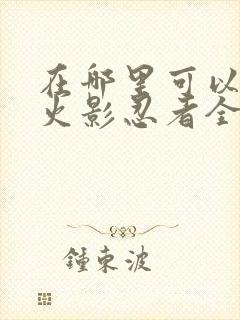 在哪里可以
火影忍者全
鍾東波